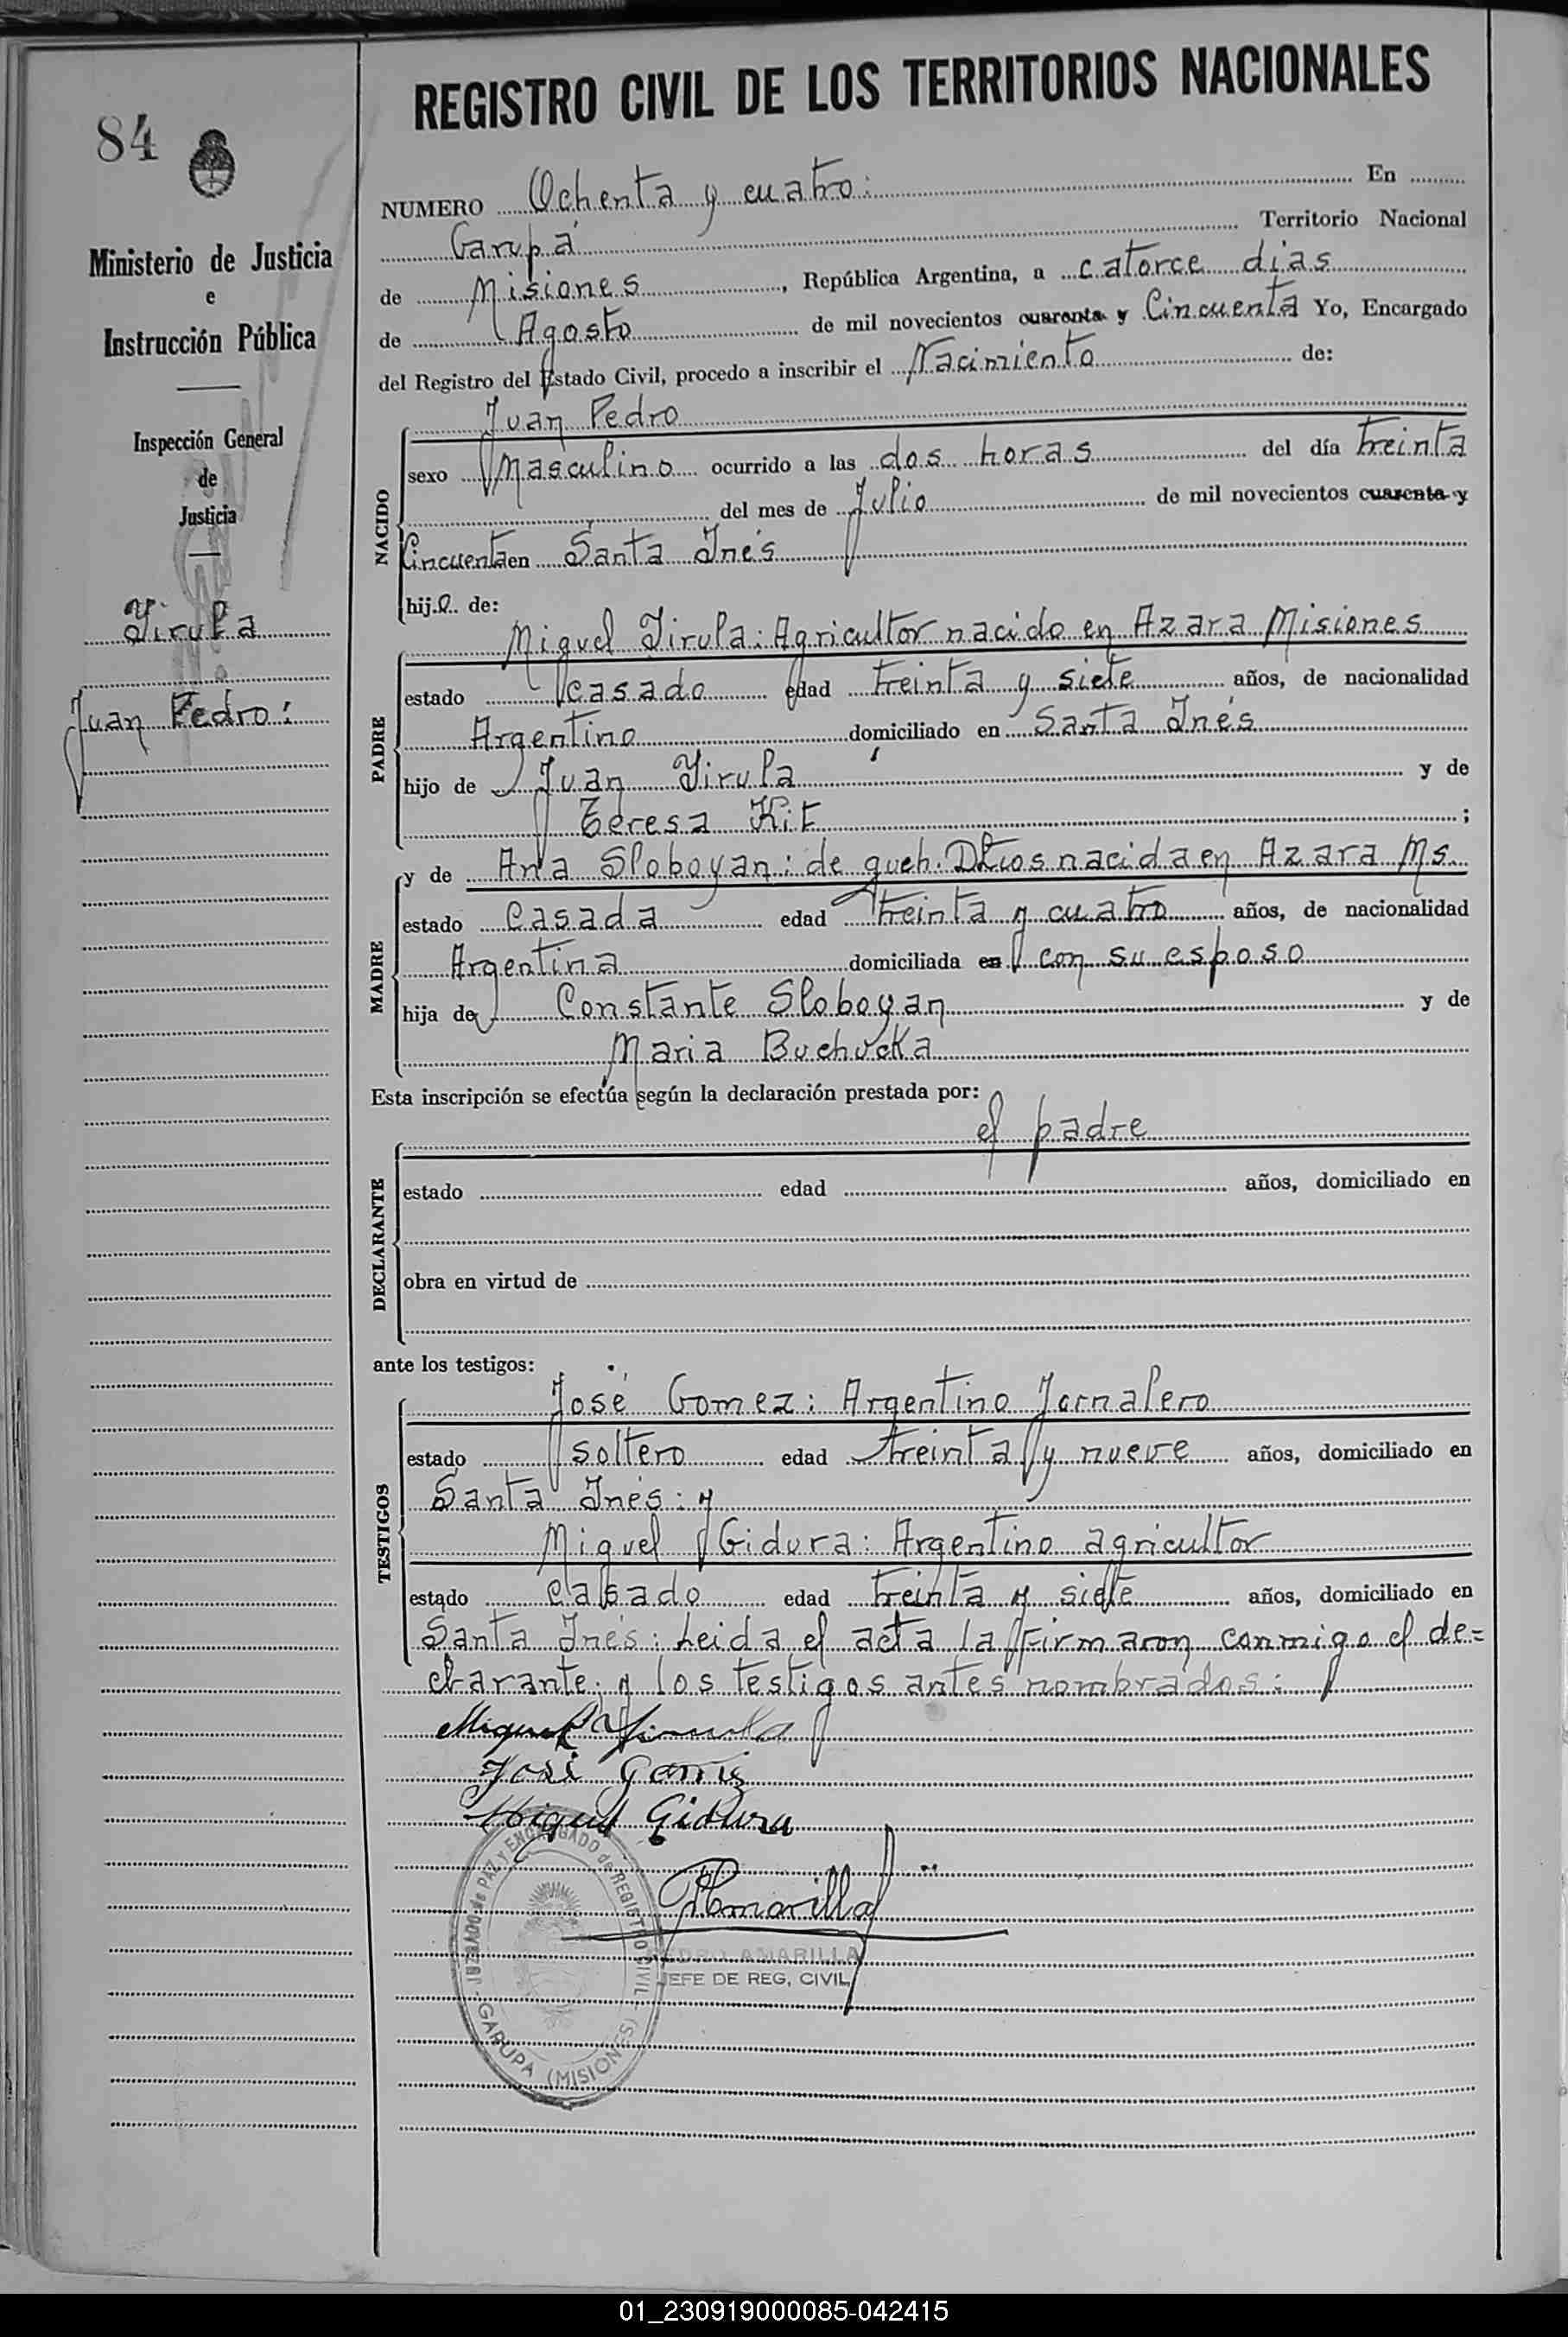 REGISTRO CIVIL DE LOS TERRITORIOS NACIONALES
84
Ministerio de Justicia
e
Instrucción Pública
Inspección General
de
Justicia
Yirula
Juan Pedro:
NUMERO Ochenta y cuatro: En
Garupá Territorio Nacional
de Misiones, República Argentina, a catorce dias
de Agosto de mil novecientos cuarenta y Cincuenta Yo, Encargado
del Registro del Estado Civil, procedo a inscribir el Nacimiento de:
NACIDO
Juan Pedro
sexo Masculino ocurrido a las dos horas del día treinta
del mes de Julio de mil novecientos cuarenta y
Cincuenta en Santa Inés
hijo de:
PADRE
Miguel Yirula: Agricultor nacido en Azara Misiones
estado casado edad treinta y siete años, de nacionalidad
Argentino domiciliado en Santa Inés
hijo de Juan Yirula y de
Teresa Kit ;
MADRE
y de Ana Sloboyan: de queh. Dtios nacida en Azara Ms.
estado Casada edad treinta y cuatro años, de nacionalidad
Argentina domiciliada en con su esposo
hija de Constante Sloboyan y de
Maria Buchucka
Esta inscripción se efectúa según la declaración prestada por:
DECLARANTE
el padre
estado edad años, domiciliado en
obra en virtud de
ante los testigos:
TESTIGOS
José Gomez: Argentino Jornalero
estado soltero edad treinta y nueve años, domiciliado en
Santa Inés: y
Miguel Gidura: Argentino agricultor
estado casado edad treinta y siete años, domiciliado en
Santa Inés: Leida el acta la firmaron conmigo el de=
clarante y los testigos antes nombrados:
Miguel Yirula
José Gomez
Miguel Gidura
PAmarilla
PEDRO AMARILLA
JEFE DE REG, CIVIL
JUZGADO de PAZ y ENCARGADO de REGISTRO CIVIL
GARUPA (MISIONES)
01_230919000085-042415